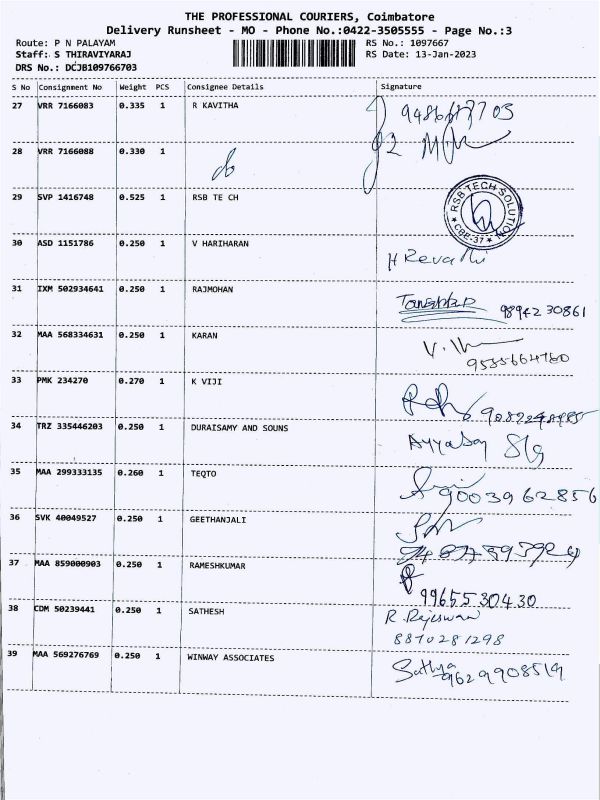 THE PROFESSIONAL COURIERS, Coimbatore
Delivery Runsheet - MO - Phone No.:0422-3505555 - Page No.:3
Route: P N PALAYAM RS No.: 1097667
Staff: S THIRAVIYARAJ RS Date: 13-Jan-2023
DRS No.: DCJB109766703
S No Consignment No Weight PCS Consignee Details Signature
27 VRR 7166083 0.335 1 R KAVITHA
28 VRR 7166088 0.330 1
29 SVP 1416748 0.525 1 RSB TE CH RSB TECH SOLUTION ★ CBE-37 ★
30 ASD 1151786 0.250 1 V HARIHARAN H Revathi
31 IXM 502934641 0.250 1 RAJMOHAN 98942 30861
32 MAA 568334631 0.250 1 KARAN
33 PMK 234270 0.270 1 K VIJI
34 TRZ 335446203 0.250 1 DURAISAMY AND SOUNS
35 MAA 299333135 0.260 1 TEQTO 9003962856
36 SVK 40049527 0.250 1 GEETHANJALI
37 MAA 859000903 0.250 1 RAMESHKUMAR 9965530430
38 CDM 50239441 0.250 1 SATHESH R. Rajeswari
8870281298
39 MAA 569276769 0.250 1 WINWAY ASSOCIATES Sathya
9629908519